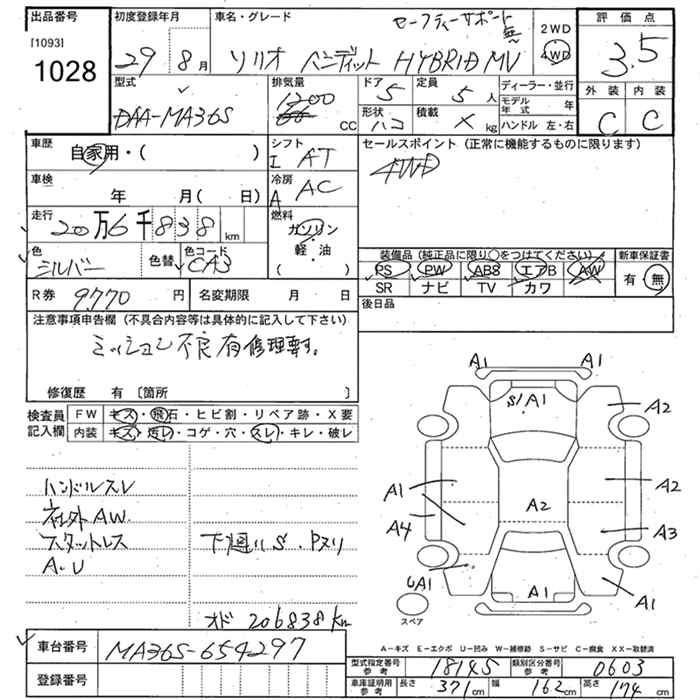 出品番号
[1093]
1028
初度登録年月
29年 8月
車名・グレード
セーフティーサポート無
ソリオ バンディット HYBRID MV
2WD
4WD
評価点
3.5
外装 内装
C C
型式
DAA-MA36S
排気量
1200
CC
ドア 5
形状 ハコ
定員 5人
積載 × kg
ディーラー・並行
モデル年式 年
ハンドル 左・右
車歴
自家用・( )
シフト
I AT
セールスポイント (正常に機能するものに限ります)
4WD
車検
年 月( 日)
冷房
A AC
走行
20万6千838 km
燃料
ガソリン
軽・油
色
シルバー
色替
色コード
装備品 (純正品に限り○をつけてください)
PS PW ABS エアB AW
SR ナビ TV カワ
新車保証書
有・無
R券 9770円
名変期限 月 日
後日品
注意事項申告欄 (不具合内容等は具体的に記入して下さい)
ミッション不良有修理要す。
修復歴 有〔箇所 〕
検査員記入欄
FW キズ・飛石・ヒビ割・リペア跡・X要
内装 キズ・汚レ・コゲ・穴・スレ・キレ・破レ
ハンドルスレ
社外AW
スタットレス
A-U
下廻りS・Pヌリ
オド 206838km
A1 A1
S/A1
A2
A1
A2
A2
A4
A3
A1
A1
スペア
A-キズ E-エクボ U-凹み W-補修跡 S-サビ C-腐食 XX-取替済
車台番号 MA36S-654297
登録番号
型式指定番号 参考 18145
類別区分番号 参考 0603
車庫証明用 参考 長さ 371cm 幅 162cm 高さ 174cm